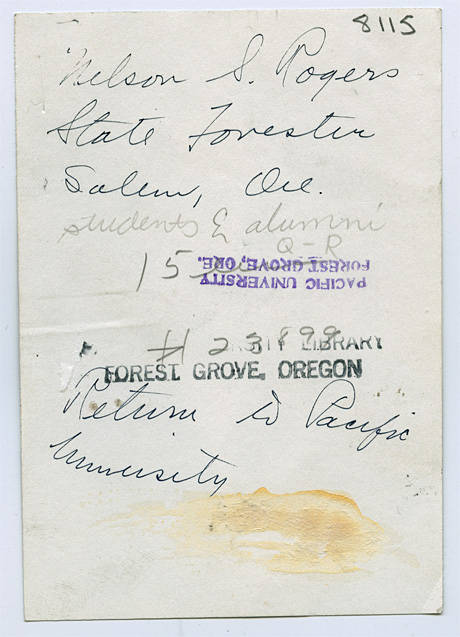 8115
Nelson S. Rogers
State Forester
Salem, Ore.
students & alumni
Q-R
15
PACIFIC UNIVERSITY
FOREST GROVE, ORE.
# 23899
LIBRARY
FOREST GROVE, OREGON
Return to Pacific
University